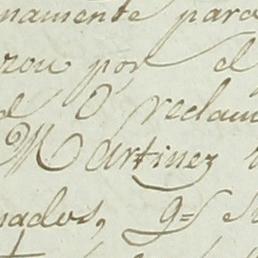 namente para
rou por el
O reclam
Martinez
nados,